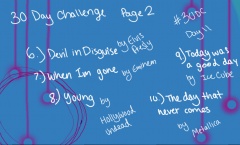 30 Day Challenge Page 2
#30DC
Day 11
6.) Devil in Disguise by Elvis Presley
7.) When I'm gone by Eminem
8.) Young by Hollywood undead
9.) Today was a good day by Ice Cube
10.) The day that never comes by Metallica